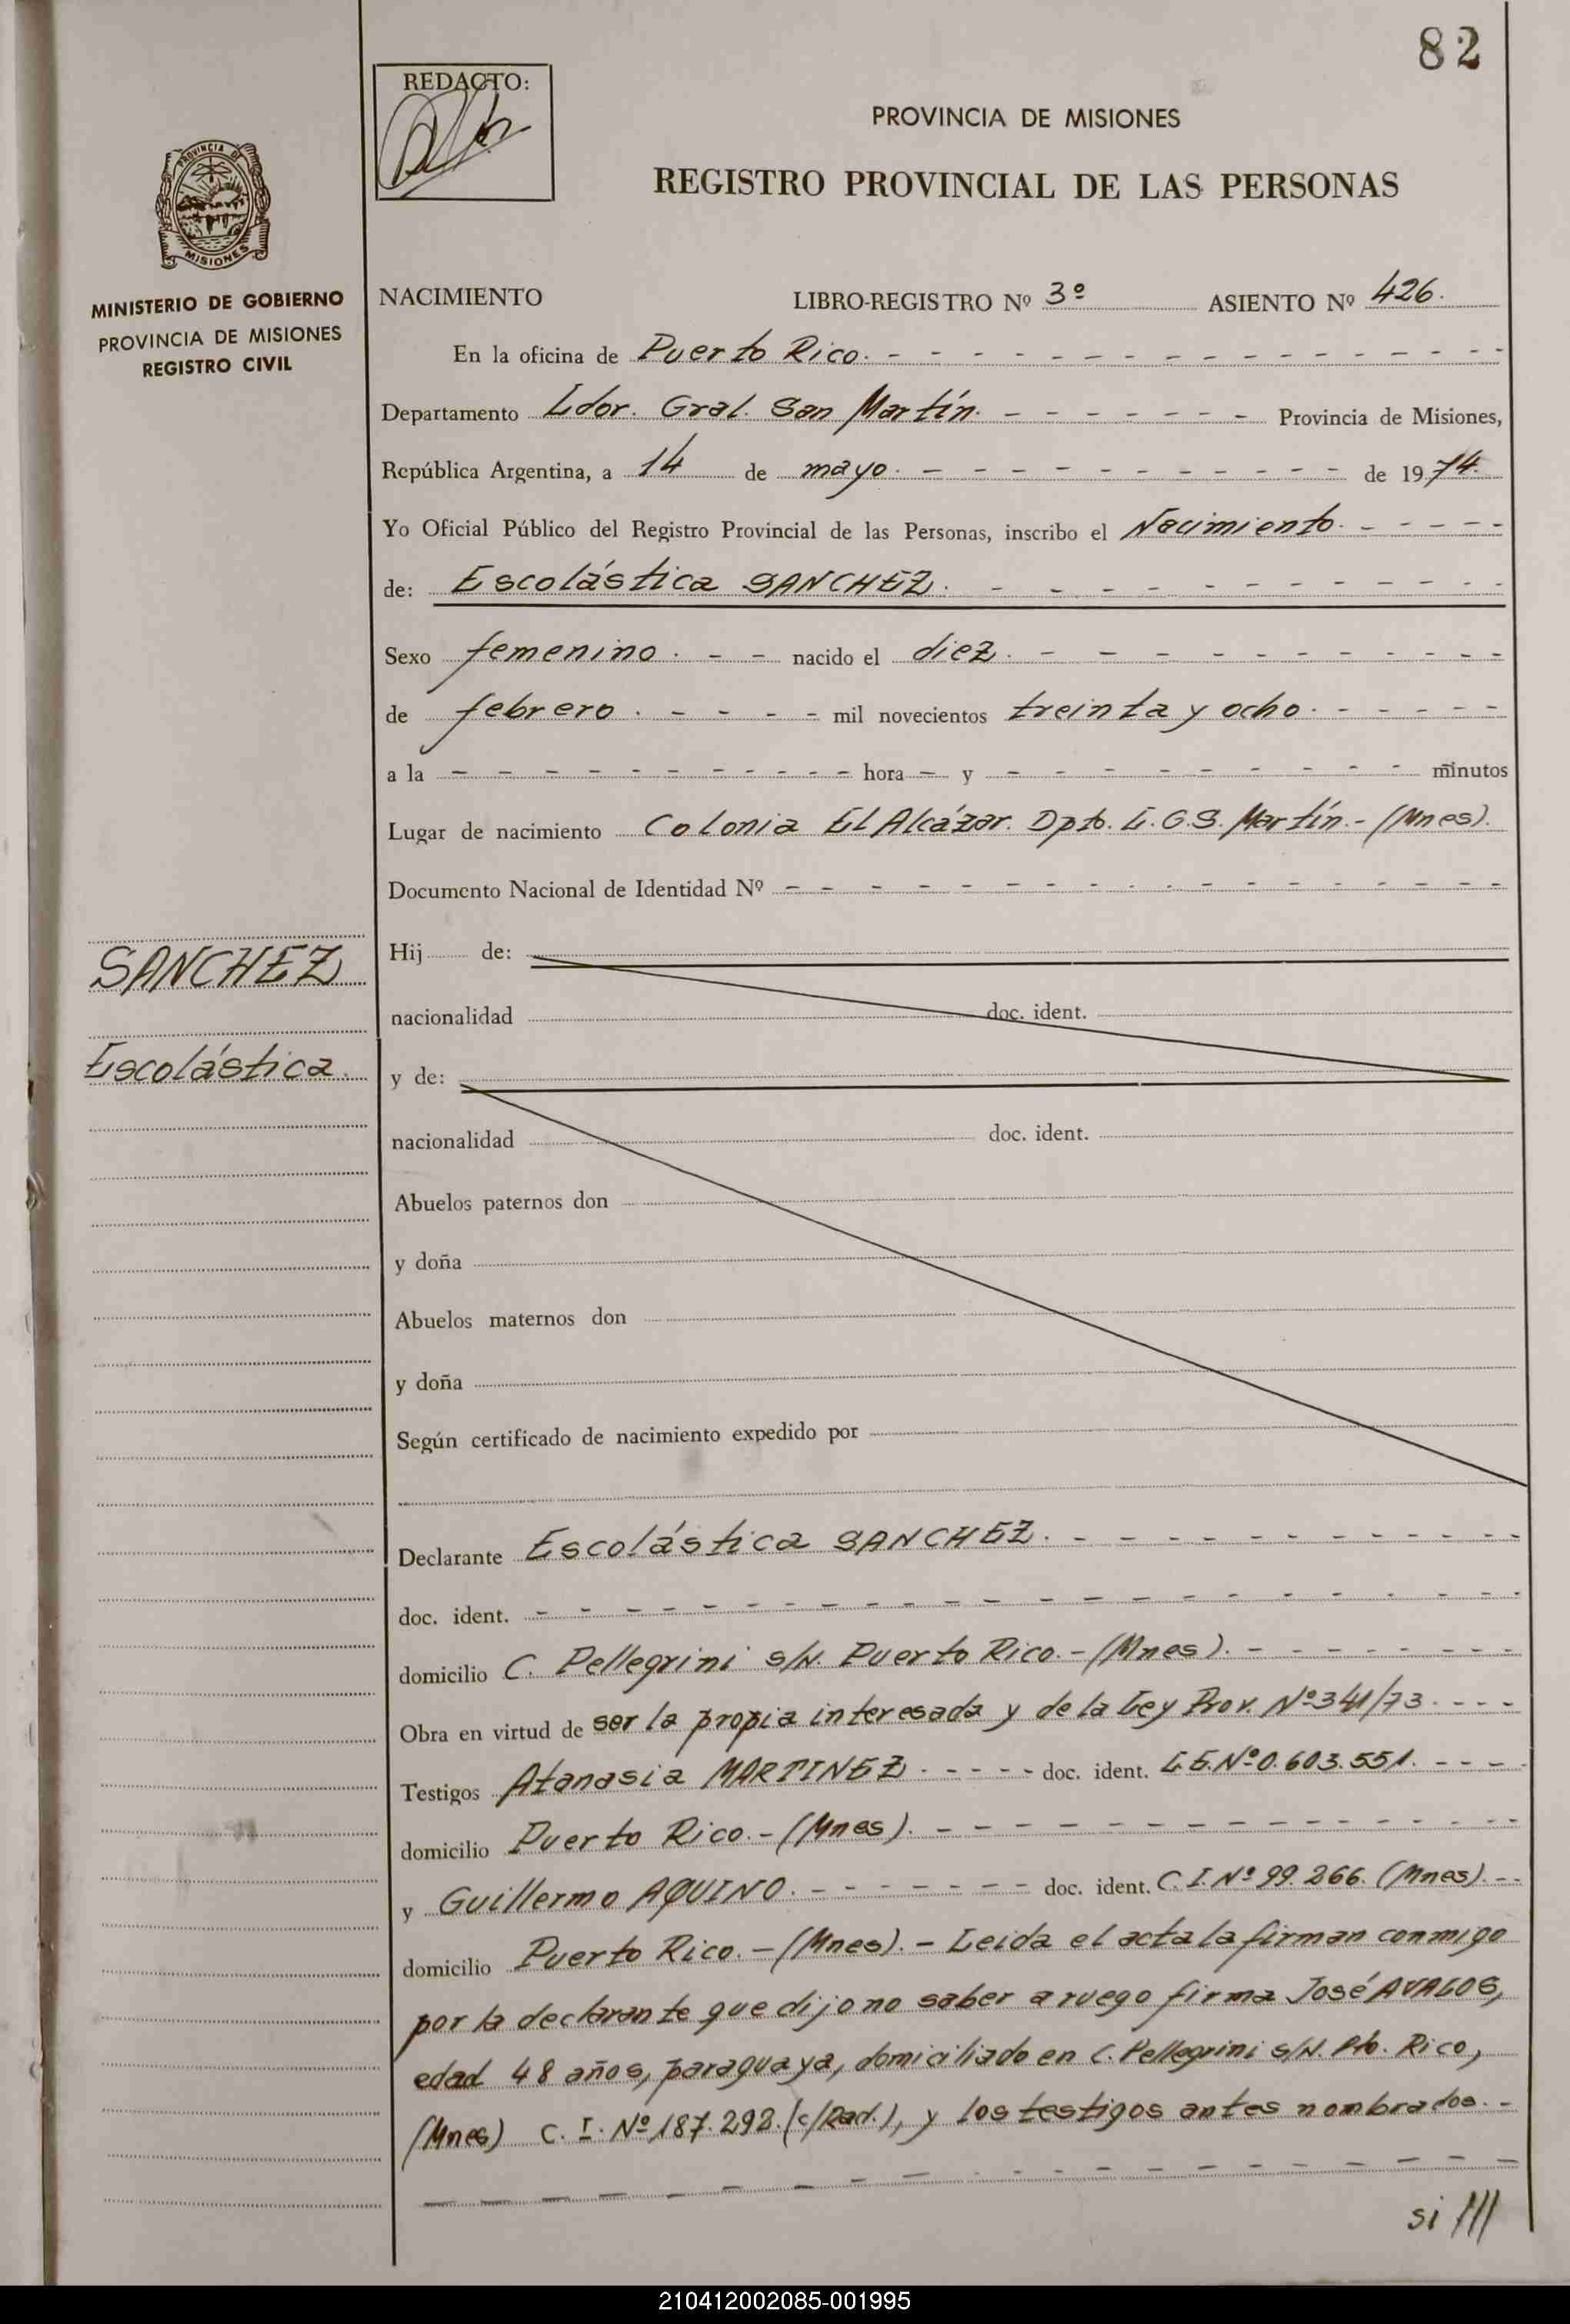 82
REDACTO:
PROVINCIA DE MISIONES
REGISTRO PROVINCIAL DE LAS PERSONAS
PROVINCIA DE
MISIONES
MINISTERIO DE GOBIERNO
PROVINCIA DE MISIONES
REGISTRO CIVIL
NACIMIENTO LIBRO-REGISTRO Nº 3º ASIENTO Nº 426.
En la oficina de Puerto Rico. - - - - - - - - - - - - - - - -
Departamento Ldor. Gral. San Martín. - - - - - - - Provincia de Misiones,
República Argentina, a 14 de mayo. - - - - - - - - - - - de 1974.
Yo Oficial Público del Registro Provincial de las Personas, inscribo el Nacimiento. - - - - -
de: Escolástica SANCHEZ. - - - - - - - - - - -
Sexo femenino. - - nacido el diez. - - - - - - - - - - -
de febrero. - - - - mil novecientos treinta y ocho. - - - - -
a la - - - - - - - - - - hora - y - - - - - - - - - minutos
Lugar de nacimiento Colonia El Alcázar. Dpto. L.G.S. Martín.- (Mnes).
Documento Nacional de Identidad Nº - - - - - - - - - - - - - - - - -
SANCHEZ
Escolástica.
Hij de:
nacionalidad doc. ident.
y de:
nacionalidad doc. ident.
Abuelos paternos don
y doña
Abuelos maternos don
y doña
Según certificado de nacimiento expedido por
Declarante Escolástica SANCHEZ. - - - - - - - - - - - -
doc. ident. - - - - - - - - - - - - - - - - - - - -
domicilio C. Pellegrini s/N. Puerto Rico.- (Mnes). - - - - - - -
Obra en virtud de ser la propia interesada y de la Ley Prov. Nº 341/73. - - - -
Testigos Atanasia MARTINEZ. - - - - doc. ident. L.E. Nº 0.603.551. - - - -
domicilio Puerto Rico.- (Mnes). - - - - - - - - - - - - - - -
y Guillermo AQUINO. - - - - - - - doc. ident. C.I. Nº 99.266. (Mnes). - -
domicilio Puerto Rico.- (Mnes).- Leida el acta la firman conmigo
por la declarante que dijo no saber a ruego firma José AVALOS,
edad 48 años, paraguaya, domiciliado en C. Pellegrini s/N. Pto. Rico,
(Mnes) C. I. Nº 187.292. (c/Rad.), y los testigos antes nombrados. -
- - - - - - - - - - - - - - - - - -
si ///
210412002085-001995